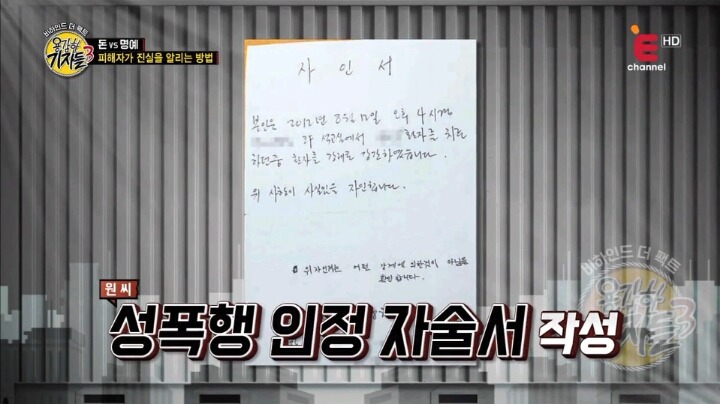 비하인드 더 팩트
용감한
기자들3
돈 vs 명예
피해자가 진실을 알리는 방법
E HD
channel
사 인 서
본인은 2012년 2월 12일 오후 4시경
과 석고실에서 환자를 치료
하던중 환자를 강제로 강간하였습니다.
위 사항이 사실임을 자인합니다.
위 자인서는 어떤 강제에 의한것이 아님을
확인합니다.
비하인드 더 팩트
용감한
기자들3
원 씨
성폭행 인정 자술서 작성